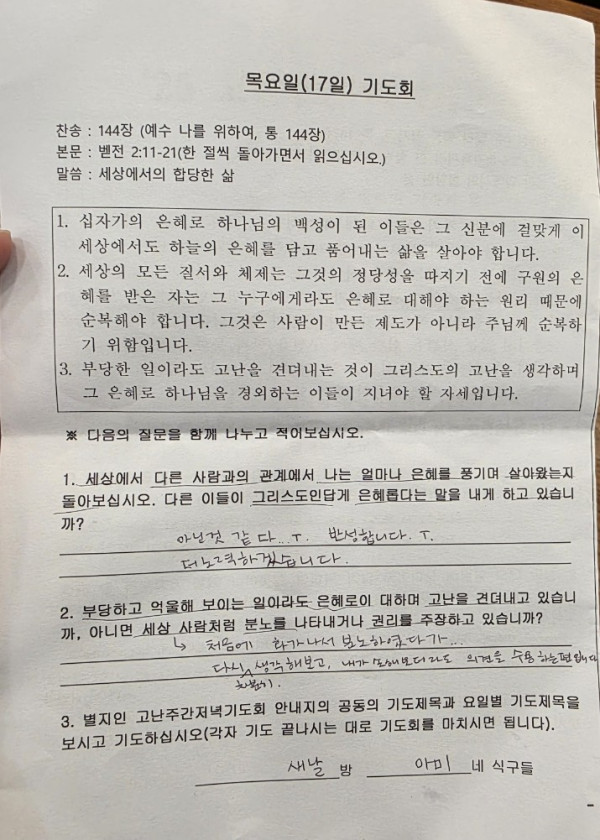 목요일(17일) 기도회
찬송 : 144장 (예수 나를 위하여, 통 144장)
본문 : 벧전 2:11-21(한 절씩 돌아가면서 읽으십시오.)
말씀 : 세상에서의 합당한 삶
1. 십자가의 은혜로 하나님의 백성이 된 이들은 그 신분에 걸맞게 이
세상에서도 하늘의 은혜를 담고 품어내는 삶을 살아야 합니다.
2. 세상의 모든 질서와 체제는 그것의 정당성을 따지기 전에 구원의 은
혜를 받은 자는 그 누구에게라도 은혜로 대해야 하는 원리 때문에
순복해야 합니다. 그것은 사람이 만든 제도가 아니라 주님께 순복하
기 위함입니다.
3. 부당한 일이라도 고난을 견뎌내는 것이 그리스도의 고난을 생각하며
그 은혜로 하나님을 경외하는 이들이 지녀야 할 자세입니다.
※ 다음의 질문을 함께 나누고 적어보십시오.
1. 세상에서 다른 사람과의 관계에서 나는 얼마나 은혜를 풍기며 살아왔는지
돌아보십시오. 다른 이들이 그리스도인답게 은혜롭다는 말을 내게 하고 있습니
까?
아닌것 같다...ㅜ. 반성합니다. ㅜ.
더노력하겠습니다.
2. 부당하고 억울해 보이는 일이라도 은혜로이 대하며 고난을 견뎌내고 있습니
까, 아니면 세상 사람처럼 분노를 나타내거나 권리를 주장하고 있습니까?
↳ 처음에 화가나서 분노하였다가...
다시 생각해보고, 내가 손해보더라도 의견을 수용하는편입니다
차분히.
3. 별지인 고난주간저녁기도회 안내지의 공동의 기도제목과 요일별 기도제목을
보시고 기도하십시오(각자 기도 끝나시는 대로 기도회를 마치시면 됩니다).
새날 방 아미 네 식구들